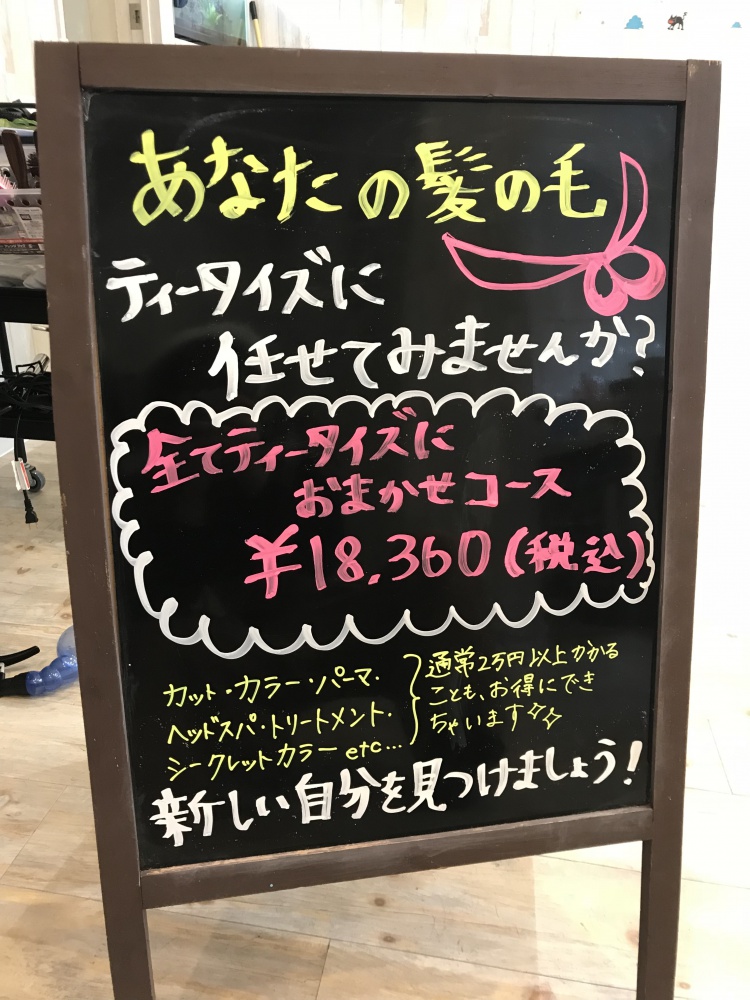 あなたの髪の毛
ティータイズに
任せてみませんか?
全てティータイズに
おまかせコース
¥18,360(税込)
カット・カラー・パーマ・
ヘッドスパ・トリートメント・
シークレットカラーetc...
通常2万円以上かかる
ことも、お得にでき
ちゃいます✧✧
新しい自分を見つけましょう!